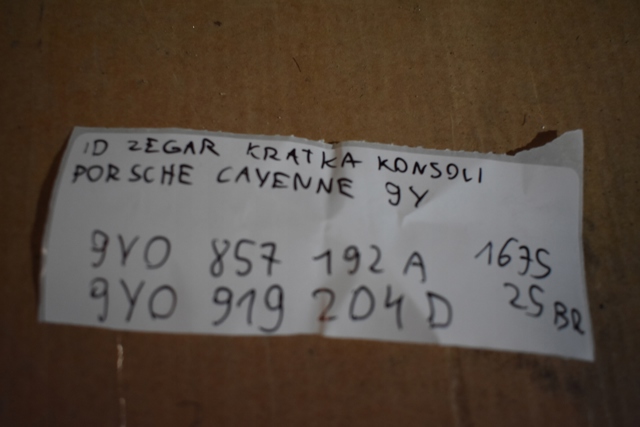 ID ZEGAR KRATKA KONSOLI
PORSCHE CAYENNE 9Y
9Y0 857 192 A 1675
9Y0 919 204 D 25 BR